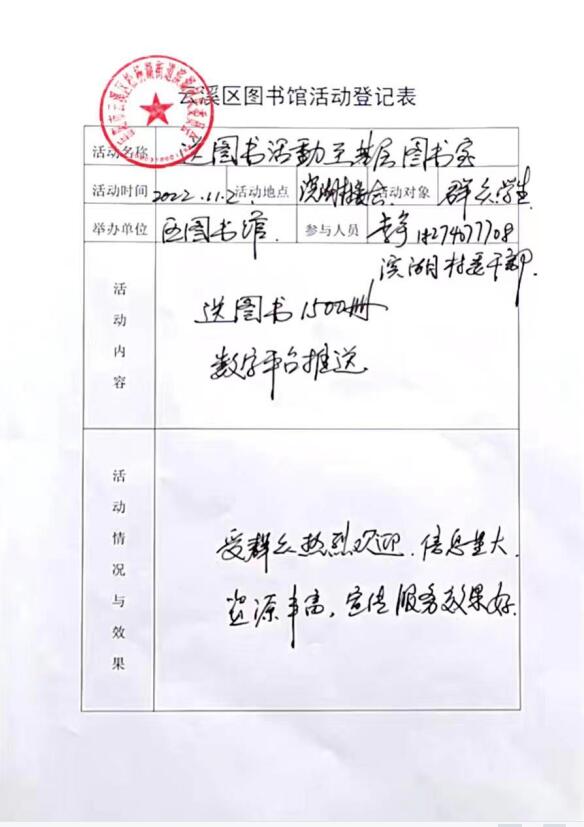 云溪区图书馆活动登记表
活动名称 送图书活動至基层图书室
活动时间 2022.11.2. 活动地点 滨湖村委会 活动对象 群众.学生
举办单位 区图书馆. 参与人员 李宁 18274077708
滨湖村委干部.
活动内容
送图书1500册
数字平台推送
活动情况与效果
受群众热烈欢迎.信息量大.
资源丰富,宣传服务效果好.